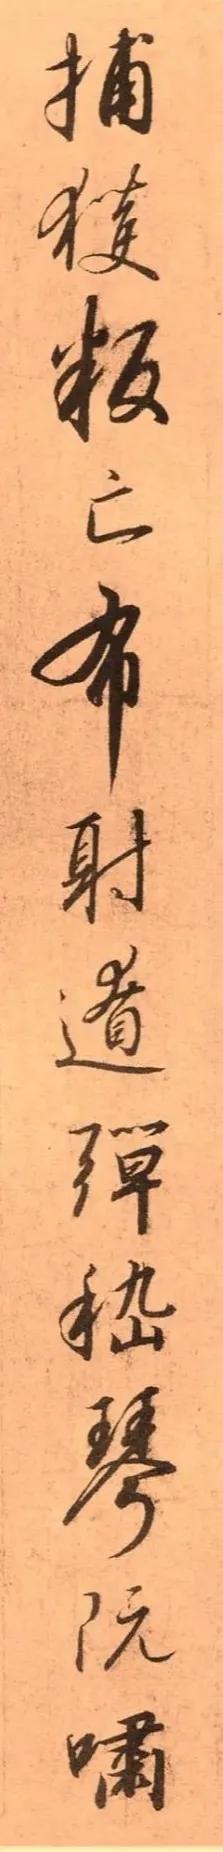 捕獲叛亡布射遼彈嵇琴阮嘯